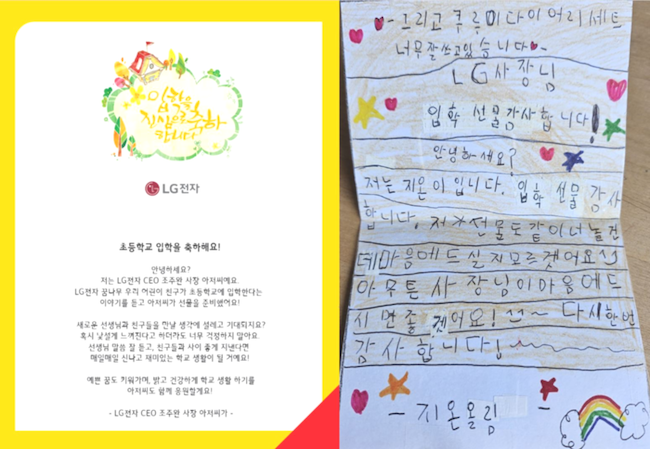 입학을
진심으로 축하
합니다
LG전자
초등학교 입학을 축하해요!
안녕하세요?
저는 LG전자 CEO 조주완 사장 아저씨예요.
LG전자 꿈나무 우리 어린이 친구가 초등학교에 입학한다는
이야기를 듣고 아저씨가 선물을 준비했어요!
새로운 선생님과 친구들을 만날 생각에 설레고 기대되지요?
혹시 낯설게 느껴진다고 하더라도 너무 걱정하지 말아요.
선생님 말씀 잘 듣고, 친구들과 사이 좋게 지낸다면
매일매일 신나고 재미있는 학교 생활이 될 거예요!
예쁜 꿈도 키워가며, 밝고 건강하게 학교 생활 하기를
아저씨도 함께 응원할게요!
- LG전자 CEO 조주완 사장 아저씨가 -
- 그리고 쿠루미다이어리세트
너무잘쓰고있습니다
LG사장님
입학 선물감사합니다!
안녕하세요?
저는 지온이입니다. 입학 선물 감사
합니다. 저 선물도 같이너놀건
데마음에드실지모르겟어요
아무튼사장님이마음에드
시면좋겠어요! 다시한번
감사합니다!
- 지온올림 -